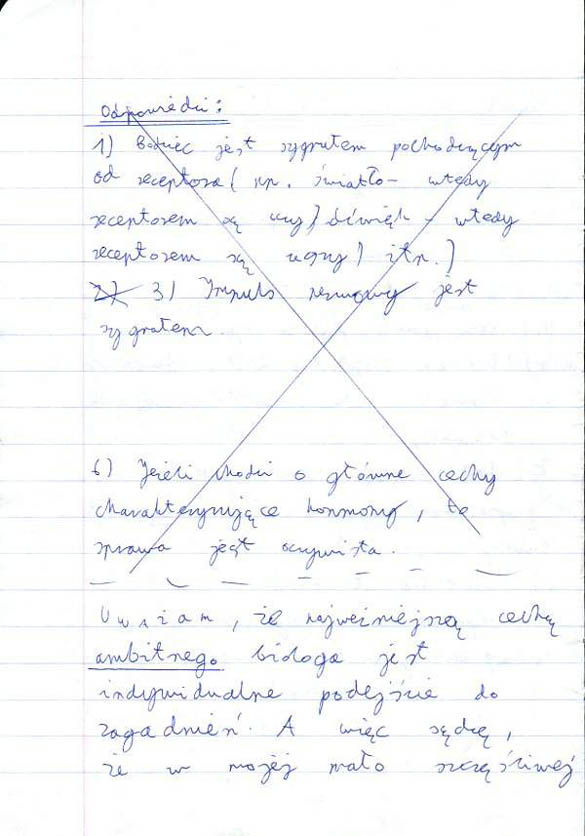 Odpowiedzi:
1) Bodziec jest sygnałem pochodzącym
od receptora (np. światło - wtedy
receptorem są oczy) dźwięk - wtedy
receptorem są uszy) itp.)
2) 3) Impuls nerwowy jest
sygnałem
6) Jeżeli chodzi o główne cechy
charakteryzujące hormony, to
sprawa jest oczywista.
Uważam, że najważniejszą cechą
ambitnego biologa jest
indywidualne podejście do
zagadnień. A więc sądzę,
że w mojej mało szczęśliwej